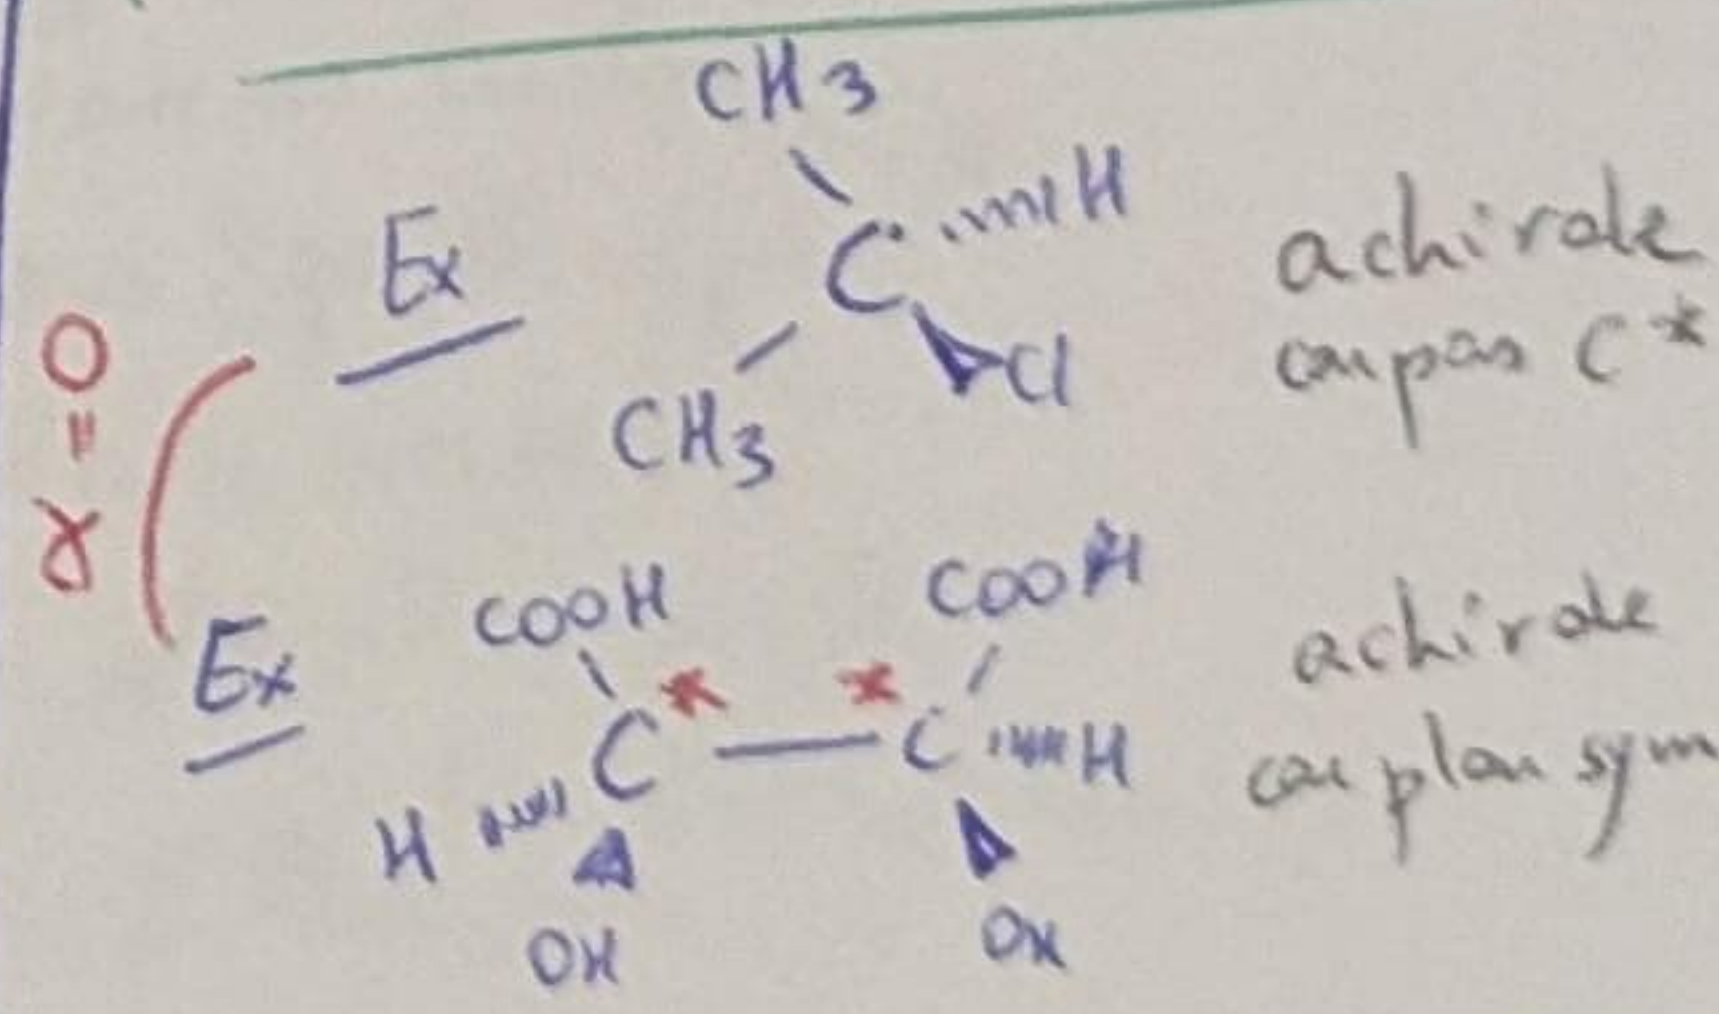 CH3
Ex
C
H
Cl
CH3
achirale
car pas C*
α = 0
Ex
COOH
COOH
C* — *C
H
H
OH
OH
achirale
car plan sym